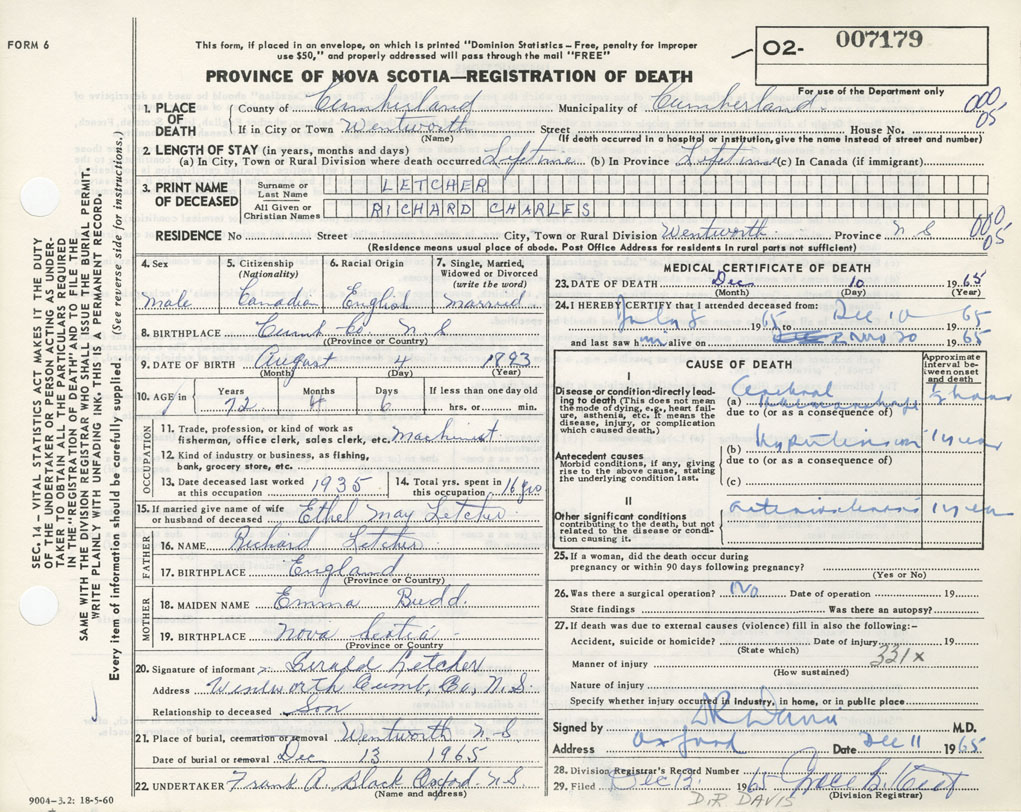 FORM 6
This form, if placed in an envelope, on which is printed "Dominion Statistics – Free, penalty for improper
use $50," and properly addressed will pass through the mail "FREE"
O2- 007179
For use of the Department only
PROVINCE OF NOVA SCOTIA—REGISTRATION OF DEATH
SEC. 14 – VITAL STATISTICS ACT MAKES IT THE DUTY
OF THE UNDERTAKER OR PERSON ACTING AS UNDER-
TAKER TO OBTAIN ALL THE PARTICULARS REQUIRED
IN THE "REGISTRATION OF DEATH" AND TO FILE THE
SAME WITH THE DIVISION REGISTRAR WHO SHALL ISSUE THE BURIAL PERMIT.
WRITE PLAINLY WITH UNFADING INK. THIS IS A PERMANENT RECORD.
Every item of information should be carefully supplied. (See reverse side for instructions.)
1. PLACE OF DEATH County of Cumberland Municipality of Cumberland 000/05
If in City or Town Wentworth Street House No.
(Name) (If death occurred in a hospital or institution, give the name instead of street and number)
2. LENGTH OF STAY (in years, months and days)
(a) In City, Town or Rural Division where death occurred Lifetime (b) In Province Lifetime (c) In Canada (if immigrant)
3. PRINT NAME OF DECEASED Surname or Last Name LETCHER
All Given or Christian Names RICHARD CHARLES
RESIDENCE No Street City, Town or Rural Division Wentworth Province N S 000/05
(Residence means usual place of abode. Post Office Address for residents in rural parts not sufficient)
4. Sex male
5. Citizenship (Nationality) Canadian
6. Racial Origin English
7. Single, Married, Widowed or Divorced (write the word) married
8. BIRTHPLACE Cumb Co N S
(Province or Country)
9. DATE OF BIRTH August 4 1893
(Month) (Day) (Year)
10. AGE in Years 72 Months 4 Days 6 If less than one day old hrs. or min.
OCCUPATION
11. Trade, profession, or kind of work as fisherman, office clerk, sales clerk, etc. machinist
12. Kind of industry or business, as fishing, bank, grocery store, etc.
13. Date deceased last worked at this occupation 1935
14. Total yrs. spent in this occupation 16 yrs
15. If married give name of wife or husband of deceased Ethel May Letcher
FATHER
16. NAME Richard Letcher
17. BIRTHPLACE England
(Province or Country)
MOTHER
18. MAIDEN NAME Emma Budd
19. BIRTHPLACE Nova Scotia
(Province or Country)
20. Signature of informant Gerald Letcher
Address Wentworth Cumb, Co, N.S.
Relationship to deceased Son
21. Place of burial, cremation or removal Wentworth N S
Date of burial or removal Dec 13 1965
22. UNDERTAKER Frank A. Black Oxford, N S
(Name and address)
9004-3.2: 18-5-60
MEDICAL CERTIFICATE OF DEATH
23. DATE OF DEATH Dec 10 1965
(Month) (Day) (Year)
24. I HEREBY CERTIFY that I attended deceased from:
July 8 1965 to Dec 10 1965
and last saw him alive on Nov 30 1965
CAUSE OF DEATH
Approximate interval between onset and death
I
Disease or condition directly leading to death (This does not mean the mode of dying, e.g., heart failure, asthenia, etc. It means the disease, injury, or complication which caused death.)
(a) Cerebral
due to (or as a consequence of)
Antecedent causes
Morbid conditions, if any, giving rise to the above cause, stating the underlying condition last.
(b) hypertension 1 year
due to (or as a consequence of)
(c)
II
Other significant conditions contributing to the death, but not related to the disease or condition causing it.
arteriosclerosis 1 year
25. If a woman, did the death occur during
pregnancy or within 90 days following pregnancy?
(Yes or No)
26. Was there a surgical operation? No Date of operation 19
State findings Was there an autopsy?
27. If death was due to external causes (violence) fill in also the following:-
Accident, suicide or homicide? Date of injury 19
(State which) 331x
Manner of injury
(How sustained)
Nature of injury
Specify whether injury occurred in industry, in home, or in public place
Signed by DR Davis M.D.
Address Oxford Date Dec 11 1965
28. Division Registrar's Record Number
29. Filed Dec 13 1965
(Division Registrar)
D.R DAVIS